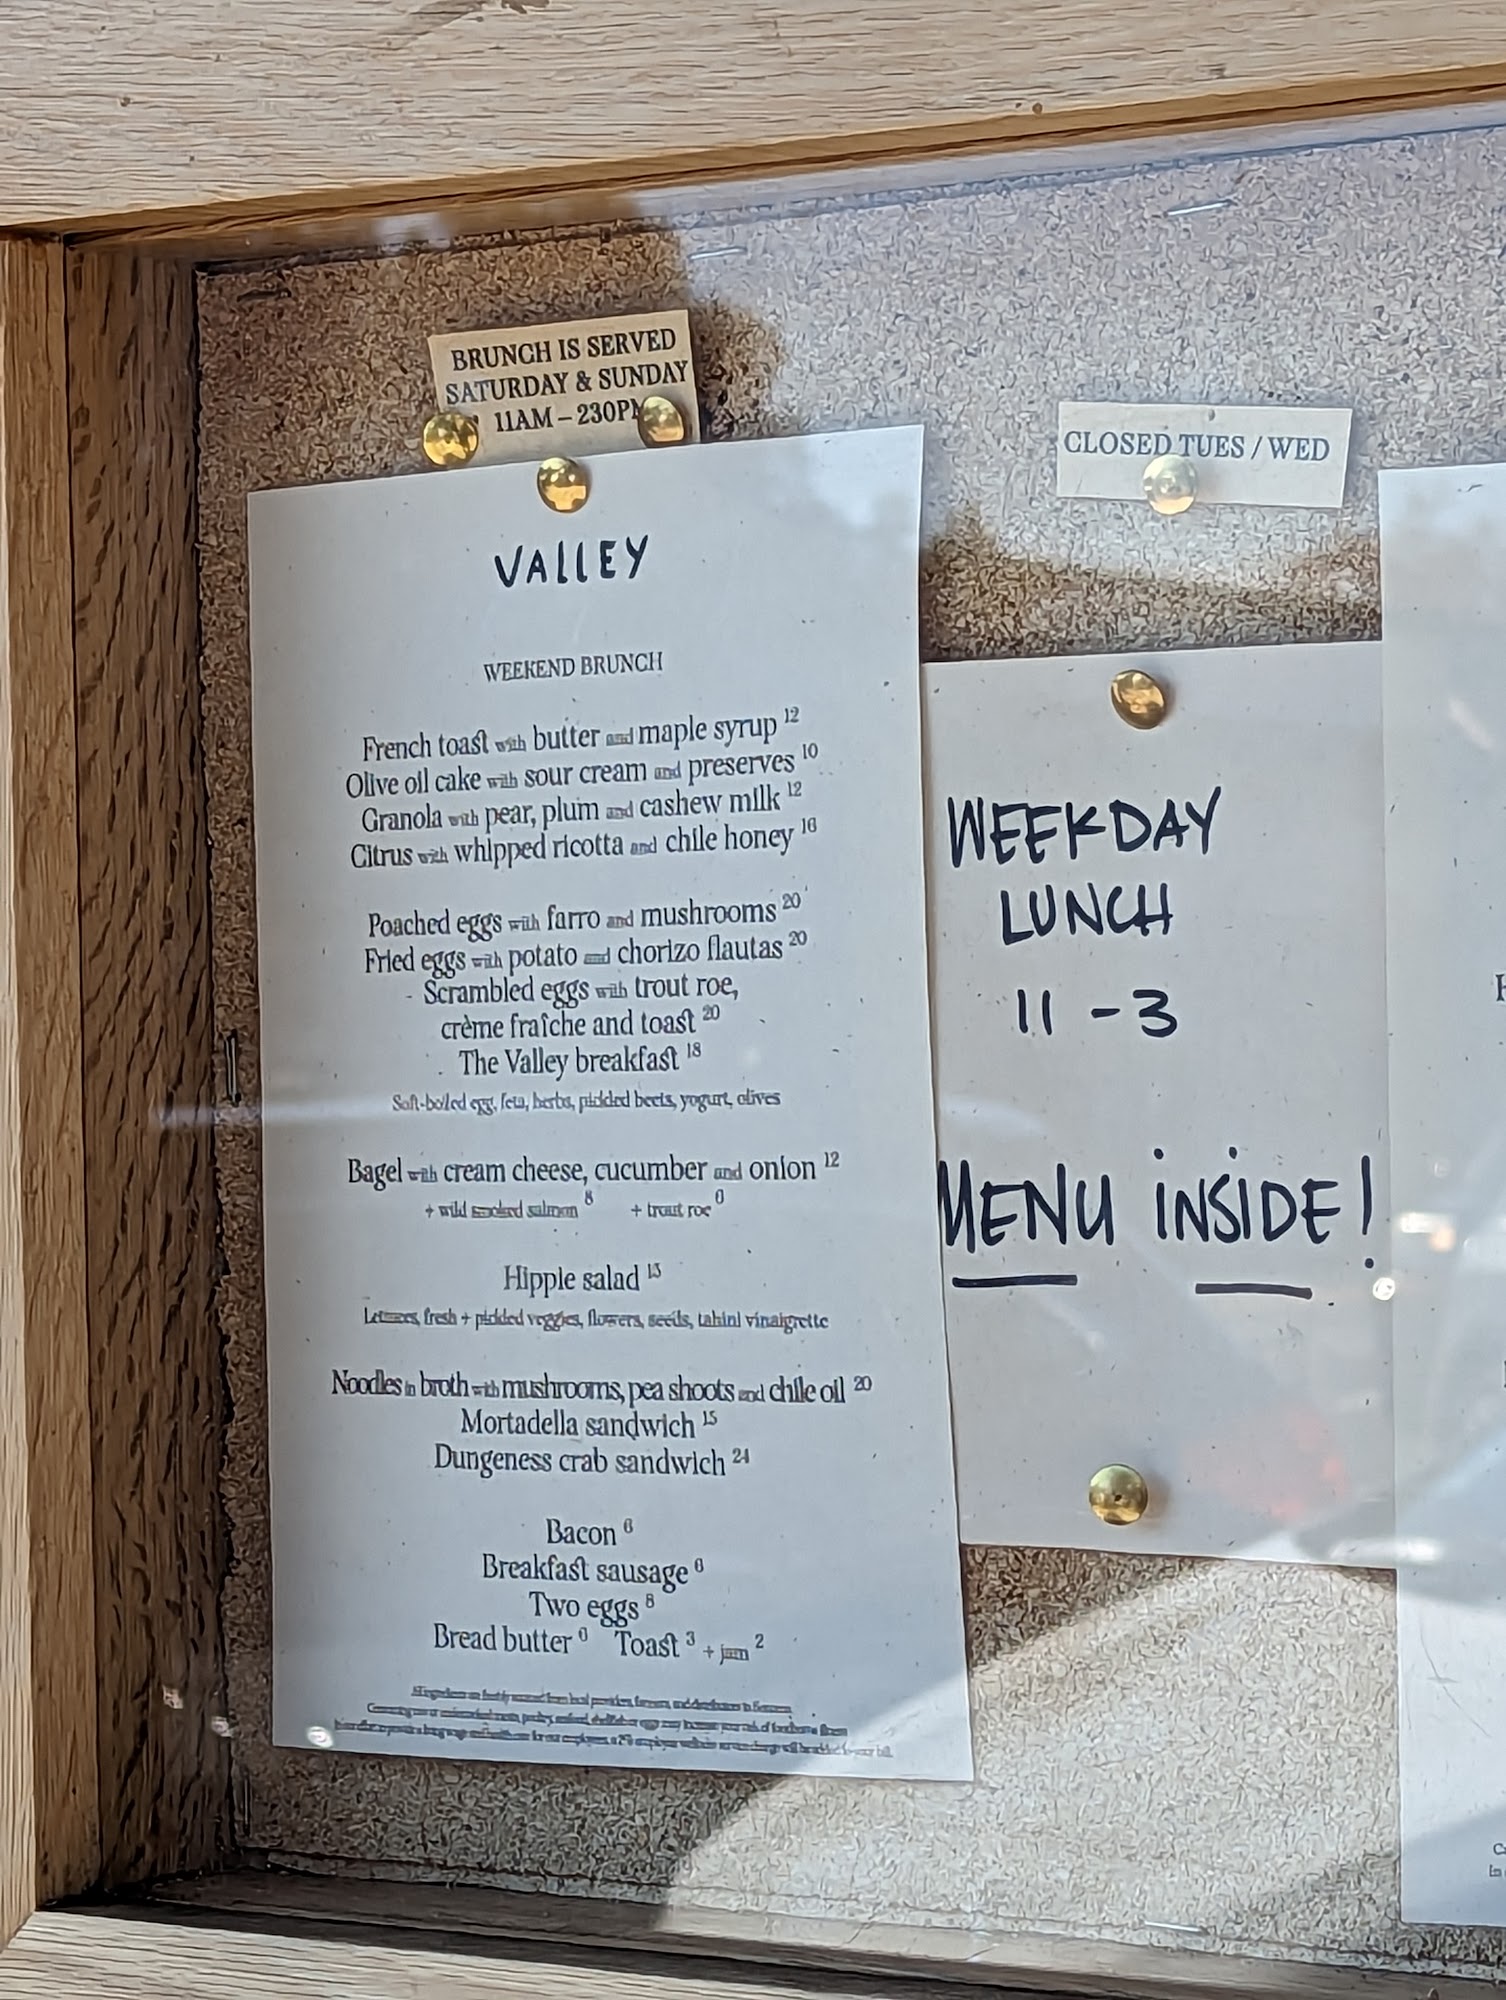 BRUNCH IS SERVED
SATURDAY & SUNDAY
11AM – 230PM
CLOSED TUES / WED
VALLEY
WEEKEND BRUNCH
French toast with butter and maple syrup 12
Olive oil cake with sour cream and preserves 10
Granola with pear, plum and cashew milk 12
Citrus with whipped ricotta and chile honey 16
Poached eggs with farro and mushrooms 20
Fried eggs with potato and chorizo flautas 20
Scrambled eggs with trout roe,
crème fraîche and toast 20
The Valley breakfast 18
Soft-boiled egg, feta, herbs, pickled beets, yogurt, olives
Bagel with cream cheese, cucumber and onion 12
+ wild smoked salmon 8 + trout roe
Hippie salad
Lettuces, fresh + pickled veggies, flowers, seeds, tahini vinaigrette
Noodles in broth with mushrooms, pea shoots and chile oil 20
Mortadella sandwich 15
Dungeness crab sandwich 24
Bacon 6
Breakfast sausage 6
Two eggs 8
Bread butter Toast 3 + jam 2
WEEKDAY
LUNCH
11 - 3
MENU INSIDE!